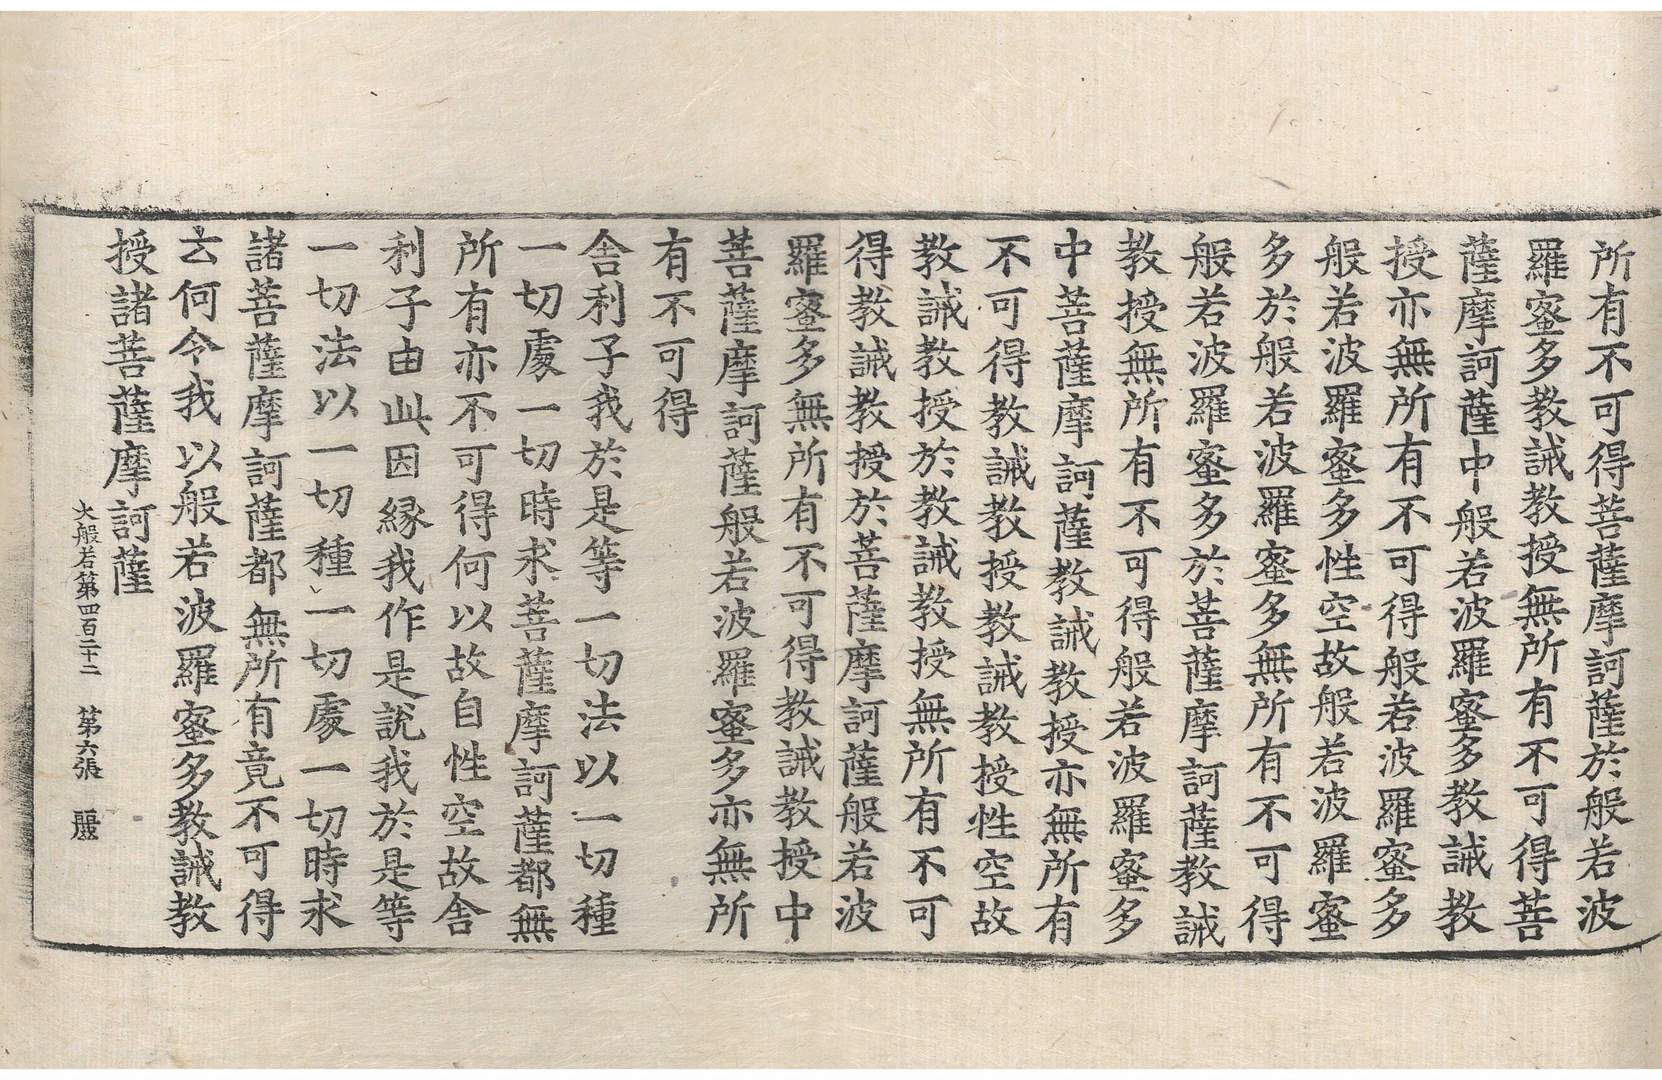 所有不可得菩薩摩訶薩於般若波
羅蜜多教誡教授無所有不可得菩
薩摩訶薩中般若波羅蜜多教誡教
授亦無所有不可得般若波羅蜜多
般若波羅蜜多性空故般若波羅蜜
多於般若波羅蜜多無所有不可得
般若波羅蜜多於菩薩摩訶薩教誡
教授無所有不可得般若波羅蜜多
中菩薩摩訶薩教誡教授亦無所有
不可得教誡教授教誡教授性空故
教誡教授於教誡教授無所有不可
得教誡教授於菩薩摩訶薩般若波
羅蜜多無所有不可得教誡教授中
菩薩摩訶薩般若波羅蜜多亦無所
有不可得
舍利子我於是等一切法以一切種
一切處一切時求菩薩摩訶薩都無
所有亦不可得何以故自性空故舍
利子由此因緣我作是說我於是等
一切法以一切種一切處一切時求
諸菩薩摩訶薩都無所有竟不可得
云何令我以般若波羅蜜多教誡教
授諸菩薩摩訶薩
大般若第四百二十二 第六張 麗